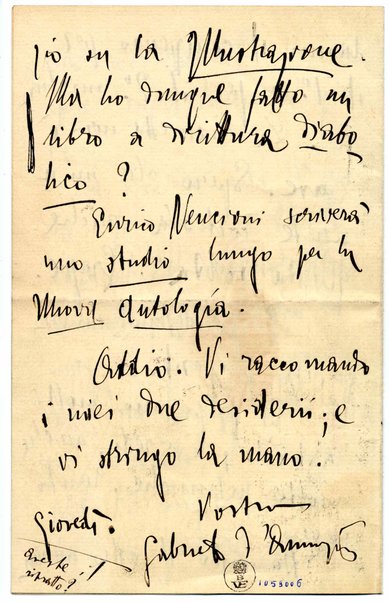 già su la Illustrazione.
Ma ho dunque fatto un
libro a dirittura diabo
lico ?
Enrico Nencioni scriverà
uno studio lungo per la
Nuova Antologia.
Addio. Vi raccomando
i miei due desiderii; e
vi stringo la mano.
Vostro
Giovedì.
Gabriele d'Annunzio
Avete il
ritratto?
1053006